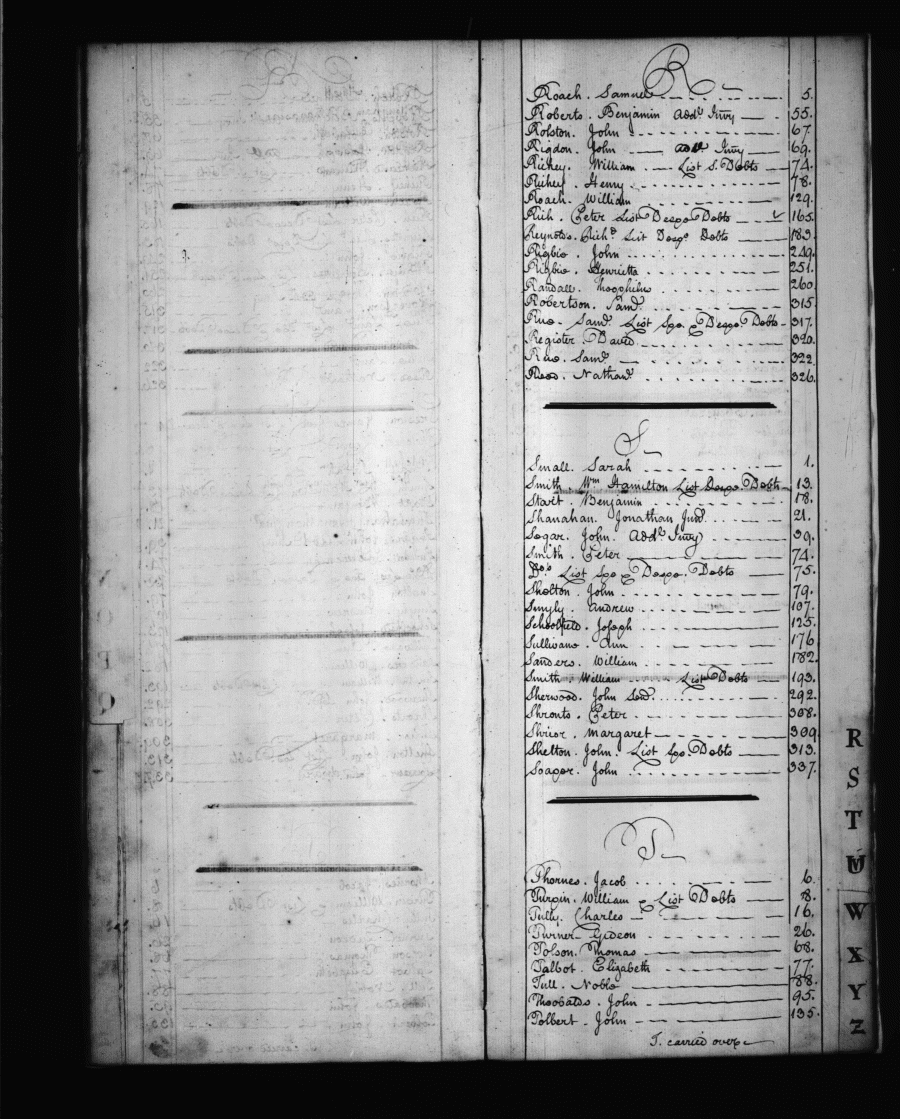 R
Roach. Samuel 5.
Roberts. Benjamin Addl Invy 55.
Rolston. John 67.
Rigdon. John Addl Invy 69.
Richey. William List S. Debts 74.
Richey. Henry 78.
Roach. William 129.
Rich. Peter List Despe Debts 165.
Reynolds. Richd List Despe Debts 183.
Rigbie. John 249.
Rigbie. Henrietta 251.
Randall. Theophilus 260.
Robertson. Saml 315.
Rue. Saml List Spe & Despe Debts 317.
Register. David 320.
Rue. Saml 322.
Rees. Nathanl 326.
S
Small. Sarah 1.
Smith. Wm Hamilton List Despe Debts 13.
Start. Benjamin 18.
Shanahan. Jonathan Junr 21.
Segar. John. Addl Invy 39.
Smith. Peter 74.
Do List Spe & Despe Debts 75.
Shelton. John 79.
Smyly. Andrew 107.
Schoolfield. Joseph 125.
Sullivane. Ann 176.
Sanders. William 182.
Smith. William List Debts 193.
Sherwood. John Senr 292.
Shronts. Peter 308.
Shrior. Margaret 309.
Shelton. John. List Spe Debts 313.
Soaper. John 337.
T
Thornes. Jacob 6.
Turpin. William & List Debts 8.
Tully. Charles 16.
Turner. Gideon 26.
Tolson. Thomas 68.
Talbot. Elizabeth 77.
Tull. Noble 88.
Theobalds. John 95.
Tolbert. John 135.
T. carried over
R
S
T
W
X
Y
Z